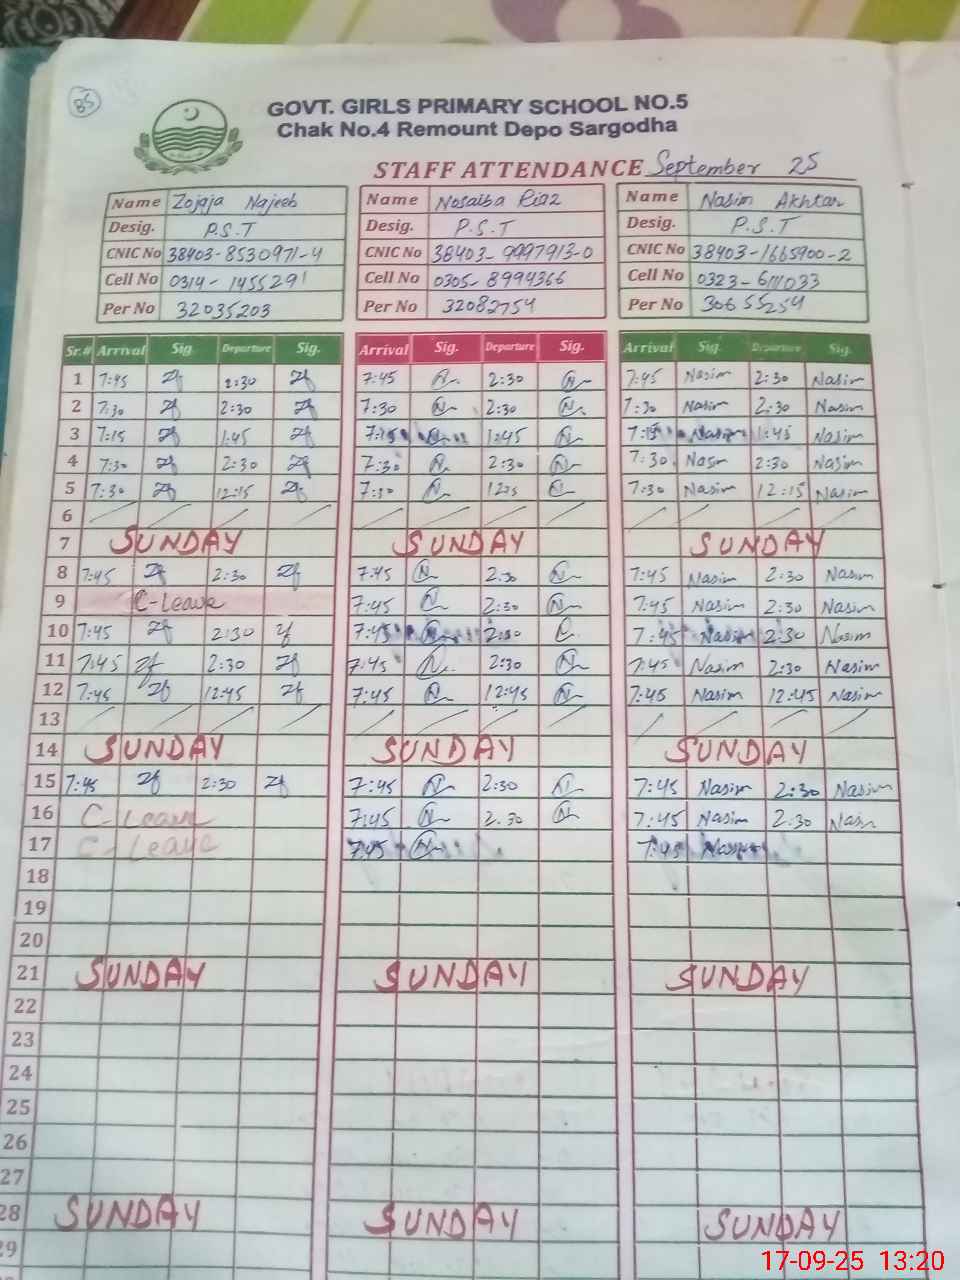 85
GOVT. GIRLS PRIMARY SCHOOL NO.5
Chak No.4 Remount Depo Sargodha
STAFF ATTENDANCE September 25
Name Zojaja Najeeb Name Nosaiba Riaz Name Nasim Akhtar
Desig. P.S.T Desig. P.S.T Desig. P.S.T
CNIC No 38403-8530971-4 CNIC No 38403-9997913-0 CNIC No 38403-1665900-2
Cell No 0314-1455291 Cell No 0305-8994366 Cell No 0323-6111033
Per No 32035203 Per No 32082754 Per No 30655254
Sr.# Arrival Sig Departure Sig. Arrival Sig. Departure Sig. Arrival Sig. Departure Sig.
1 7:45 Zf 2:30 Zf 7:45 N 2:30 N 7:45 Nasim 2:30 Nasim
2 7:30 Zf 2:30 Zf 7:30 N 2:30 N 7:30 Nasim 2:30 Nasim
3 7:15 Zf 1:45 Zf 7:15 N 1:45 N 7:15 Nasim 1:45 Nasim
4 7:30 Zf 2:30 Zf 7:30 N 2:30 N 7:30 Nasm 2:30 Nasim
5 7:30 Zf 12:15 Zf 7:30 N 1215 N 7:30 Nasim 12:15 Nasim
6 / / / / / / / / / / / /
7 SUNDAY SUNDAY SUNDAY
8 7:45 Zf 2:30 Zf 7:45 N 2:30 N 7:45 Nasim 2:30 Nasim
9 C-Leave 7:45 N 2:30 N 7:45 Nasim 2:30 Nasim
10 7:45 Zf 2:30 Zf 7:45 N 2:30 7:45 Nasim 2:30 Nasim
11 7:45 Zf 2:30 Zf 7:45 N 2:30 N 7:45 Nasim 2:30 Nasim
12 7:45 Zf 12:45 Zf 7:45 N 12:45 N 7:45 Nasim 12:45 Nasim
13 / / / / / / / / / / / /
14 SUNDAY SUNDAY SUNDAY
15 7:45 Zf 2:30 Zf 7:45 N 2:30 N 7:45 Nasim 2:30 Nasim
16 C-Leave 7:45 N 2.30 N 7:45 Nasim 2:30 Nasim
17 C-Leave 7:45 N 7:45 Nasim
18
19
20
21 SUNDAY SUNDAY SUNDAY
22
23
24
25
26
27
28 SUNDAY SUNDAY SUNDAY
29
17-09-25 13:20